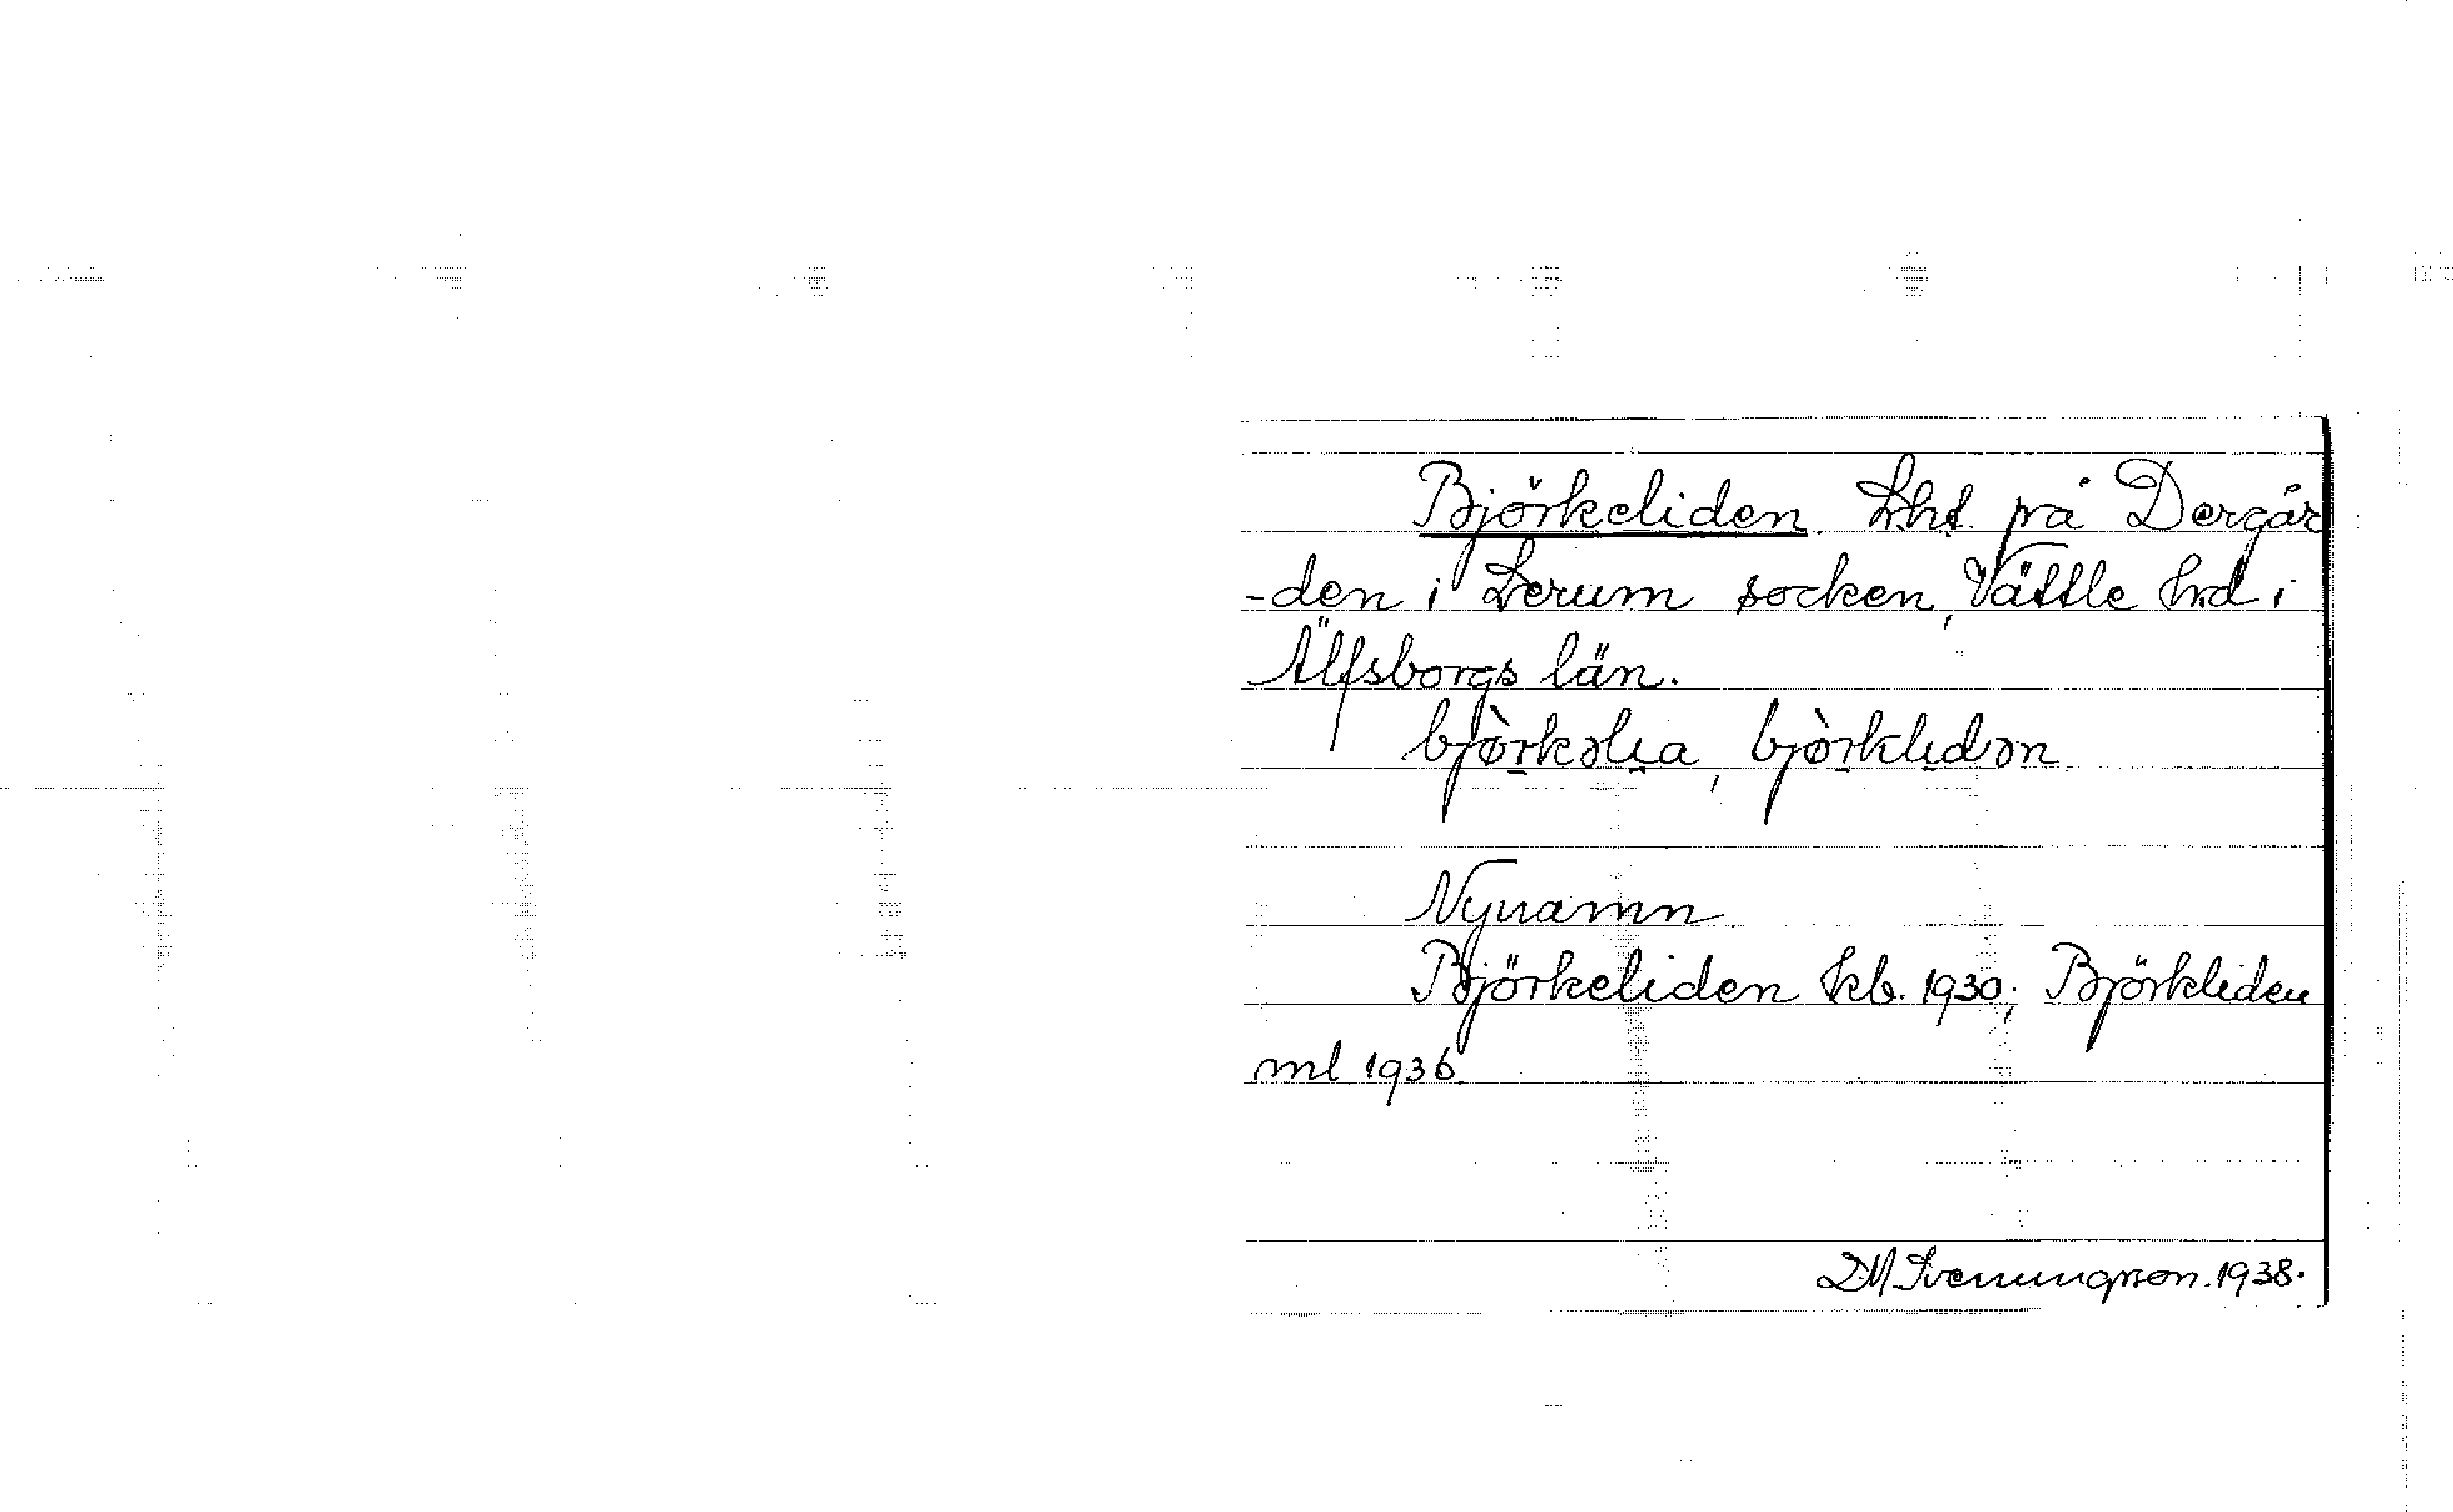 Björkeliden. Lht. på Dergår
-den i Lerum socken, Vättle hrd i
Älfsborgs län.
bjòrkəlia, bjòrklidən
Nynamn
Björkeliden kb. 1930; Björkliden
ml 1936
DM Svenungsson. 1938.